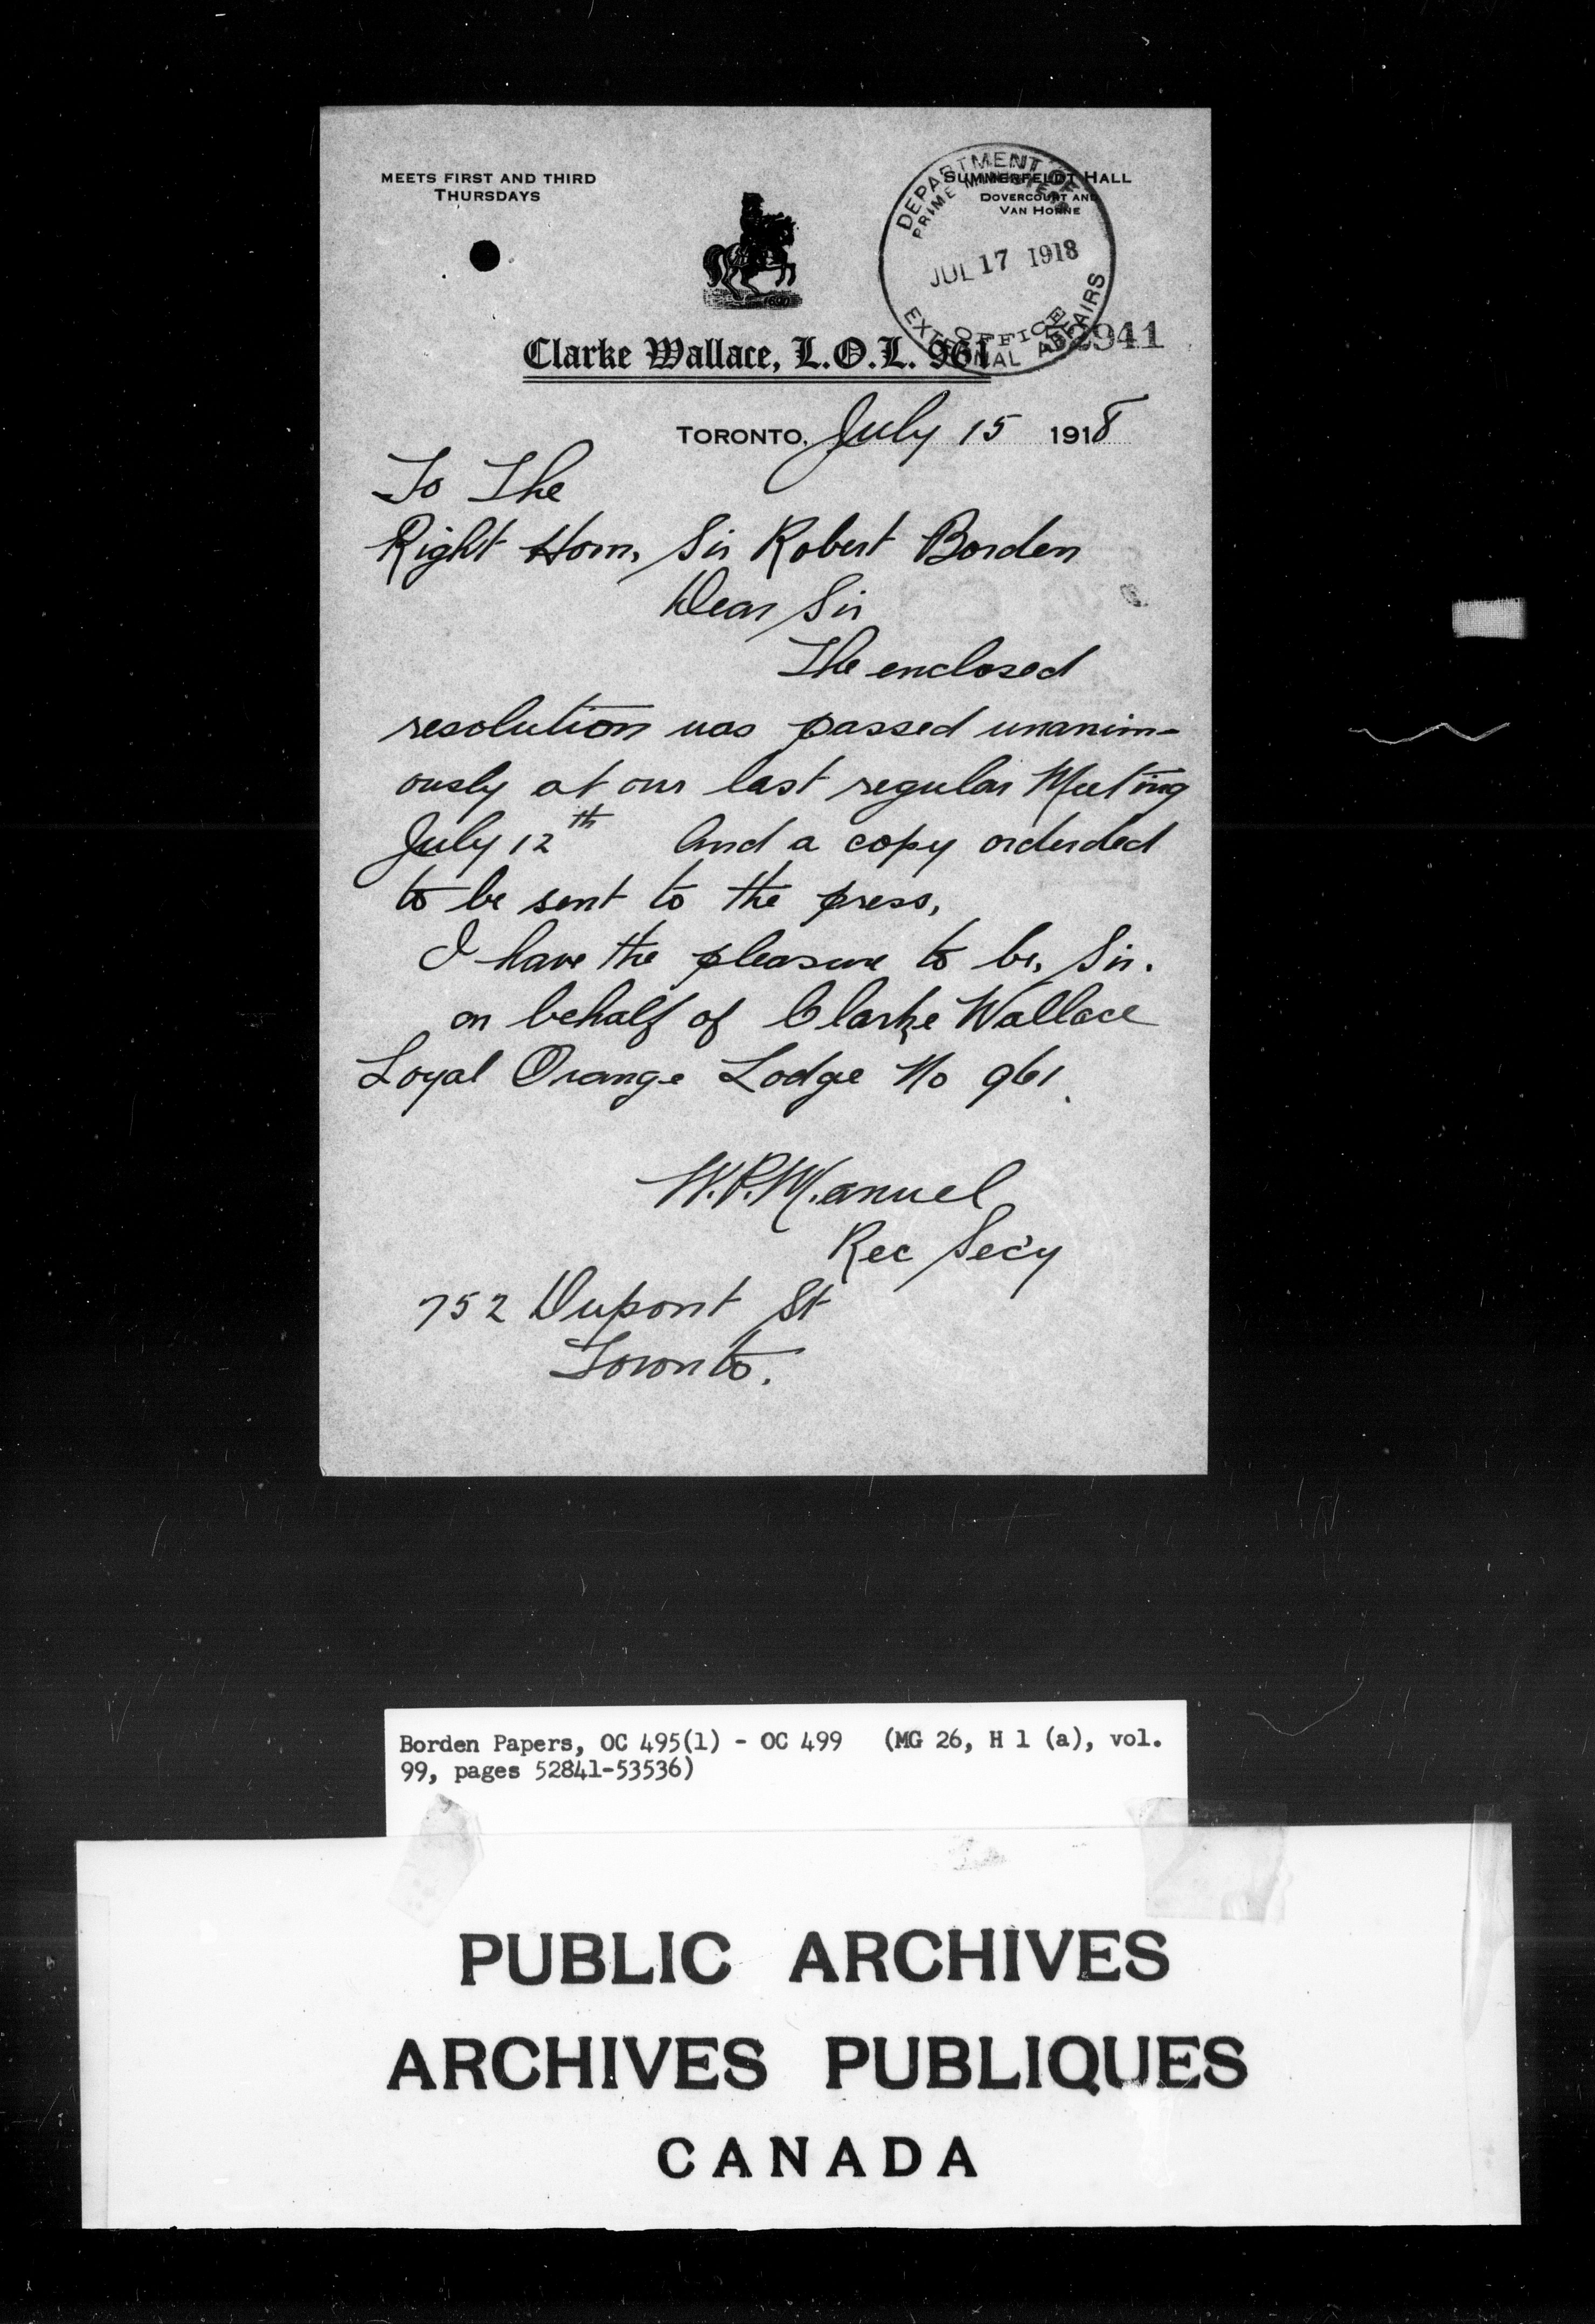 MEETS FIRST AND THIRD
THURSDAYS
SUMMERFELDT HALL
DOVERCOURT AND
VAN HORNE
DEPARTMENT OF
PRIME MINISTER'S
JUL 17 1918
OFFICE
EXTERNAL AFFAIRS
1690
52941
Clarke Wallace, L.O.L. 961
TORONTO, July 15 1918
To The
Right Hon, Sir Robert Borden
Dear Sir
The enclosed
resolution was passed unanim-
ously at our last regular Meeting
July 12th And a copy orderded
to be sent to the press,
I have the pleasure to be, Sir.
on behalf of Clarke Wallace
Loyal Orange Lodge No 961.
W.P. Manuel
Rec Sec'y
752 Dupont St
Toronto.
Borden Papers, OC 495(1) - OC 499 (MG 26, H 1 (a), vol.
99, pages 52841-53536)
PUBLIC ARCHIVES
ARCHIVES PUBLIQUES
CANADA